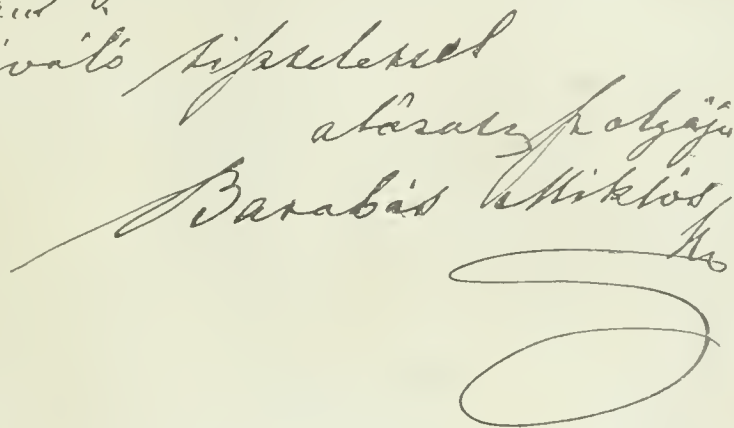 váló tisztelettel
alázatos szolgája
Barabás Miklós